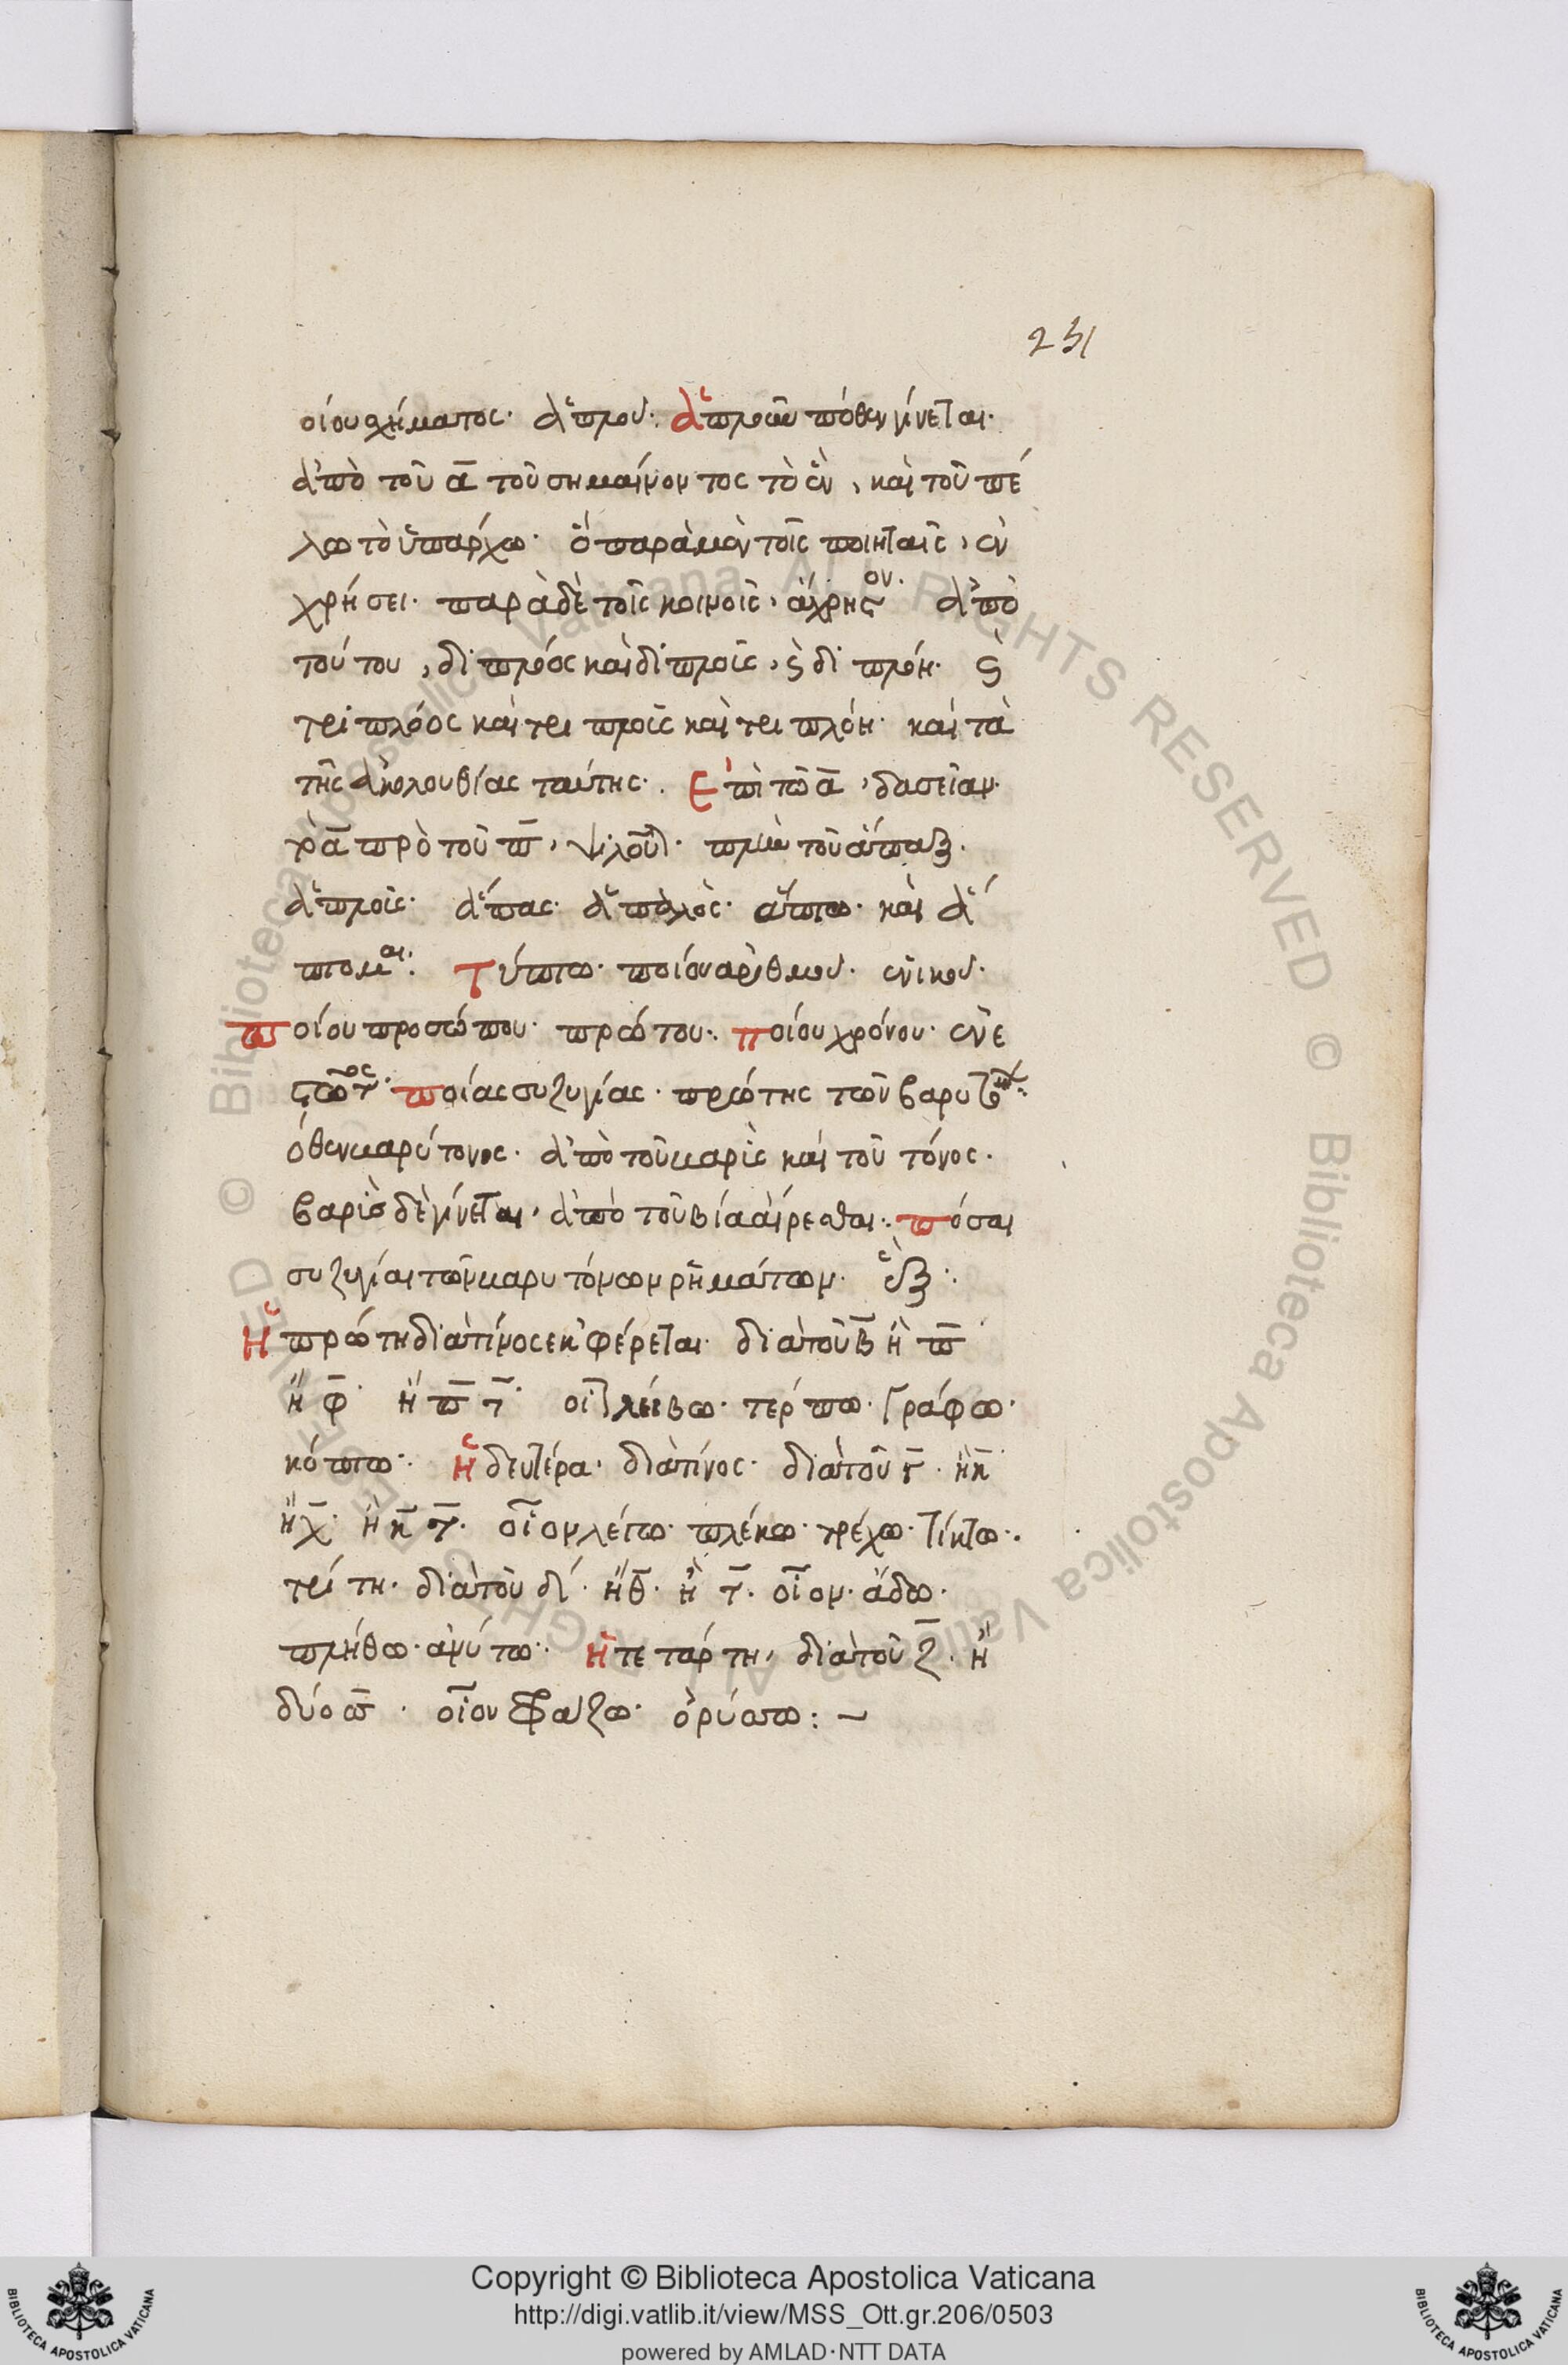 231
οίου σχήματος· ἁπλοῦ· ἁπλοῦν πόθεν γίνεται·
ἀπὸ τοῦ ᾱ τοῦ σημαίνοντος τὸ ἓν, καὶ τοῦ πέ
λω τὸ ὑπάρχω· ὃ παρὰ μὲν τοῖς ποιηταῖς, ἐν
χρήσει· παρὰ δὲ τοῖς κοινοῖς, ἄχρηστον· ἀπὸ
τούτου, διπλόος καὶ διπλοῖς, καὶ διπλόη· καὶ
τριπλόος καὶ τριπλοῖς καὶ τριπλόη· καὶ τὰ
τῆς ἀκολουθίας ταύτης· Ἐπὶ τῶ ᾱ, δασεῖαν·
τὸ ᾱ πρὸ τοῦ π̄, ψιλοῦται· πλὴν τοῦ ἅπαξ·
ἁπλοῖς· ἅπας· ἁπαλὸς· ἅπτω· καὶ ἅ
πτομαι: Τύπτω· ποίου ἀριθμοῦ· ἑνικοῦ·
ποίου προσώπου· πρώτου: ποίου χρόνου· ἐνε
στῶτος· ποίας συζυγίας· πρώτης τῶν βαρυτόνων:
ὅθεν βαρύτονος· ἀπὸ τοῦ βαρὶς καὶ τοῦ τόνος·
βαρὶς δὲ γίνεται, ἀπὸ τοῦ βία αἴρεσθαι: πόσαι
συζυγίαι τῶν βαρυτόνων ρημάτων· ἕξ:
Ἡ πρώτη διατίνος ἐκφέρεται· διατοῦ β̄ ἢ π̄
ἢ φ̄· ἢ π̄ τ̄· οἷον λείβω· τέρπω· γράφω·
κόπτω: ἡ δευτέρα· διατίνος· διατοῦ γ̄· ἢ κ̄
ἢ χ̄· ἢ κ̄ τ̄· οἷον λέγω· πλέκω· τρέχω· τίκτω:
τρίτη· διατοῦ δ· ἢ θ̄· ἢ τ̄· οἷον· ἄδω·
πλήθω· ἀνύτω: ἡ τετάρτη, διατοῦ ζ̄· ἢ
δύο σ̄σ̄· οἷον φράζω· ὀρύσσω: —
Copyright © Biblioteca Apostolica Vaticana
http://digi.vatlib.it/view/MSS_Ott.gr.206/0503
powered by AMLAD·NTT DATA